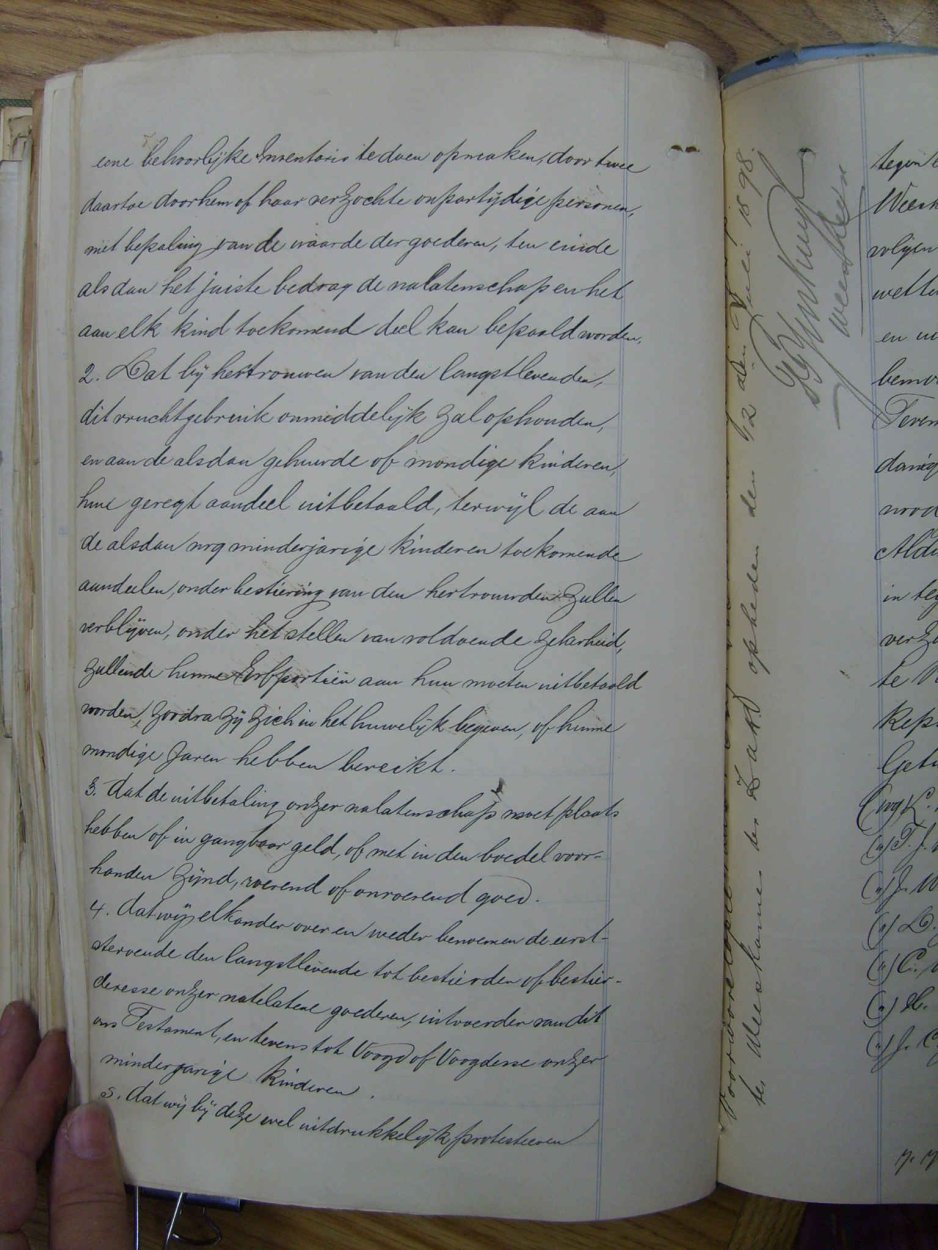 eene behoorlijke Inventaris te doen opmaken, door twee
daartoe door hem of haar verzochte onpartijdige personen,
met bepaling van de waarde der goederen, ten einde
als dan het juiste bedrag de nalatenschap en het
aan elk kind toekomend deel kan bepaald worden.
2. Dat bij hertrouwen van den langstlevenden,
dit vruchtgebruik onmiddelijk zal ophouden,
en aan de alsdan gehuurde of mondige kinderen,
hune geregt aandeel uitbetaald, terwijl de aan
de alsdan nog minderjarige kinderen toekomende
aandeelen, onder bestiering van den hertrouwden zullen
verblijven, onder het stellen van voldoende zekerheid,
zullende hunne Erfportiën aan hun moeten uitbetaald
worden, zoodra zij zich in het huwelijk begeven, of hunne
mondige Jaren hebben bereikt.
3. dat de uitbetaling onzer nalatenschap moet plaats
hebben of in gangbaar geld, of met in den boedel voor-
handen zijnd, roerend of onroerend goed.
4. dat wij elkander over en weder benoemen de eerst-
stervende den langstlevende tot bestierder of bestier-
deresse onzer natelatene goederen, uitvoerder van dit
ons Testament, en tevens tot Voogd of Voogdesse onzer
minderjarige kinderen.
5. dat wij bij deze wel uitdrukkelijk protesteeren
ter Weeskamer der ZAR op heden den 1/2 den Juli 1898.
Weesheer
tegen
Weesk
volgen
wette
en
danig
nood
in teg
verzo
te
Rep
Getu
(a) T. J.
(a) J. W
(a) L.
(a) C.
(a) H.
(a) J. C